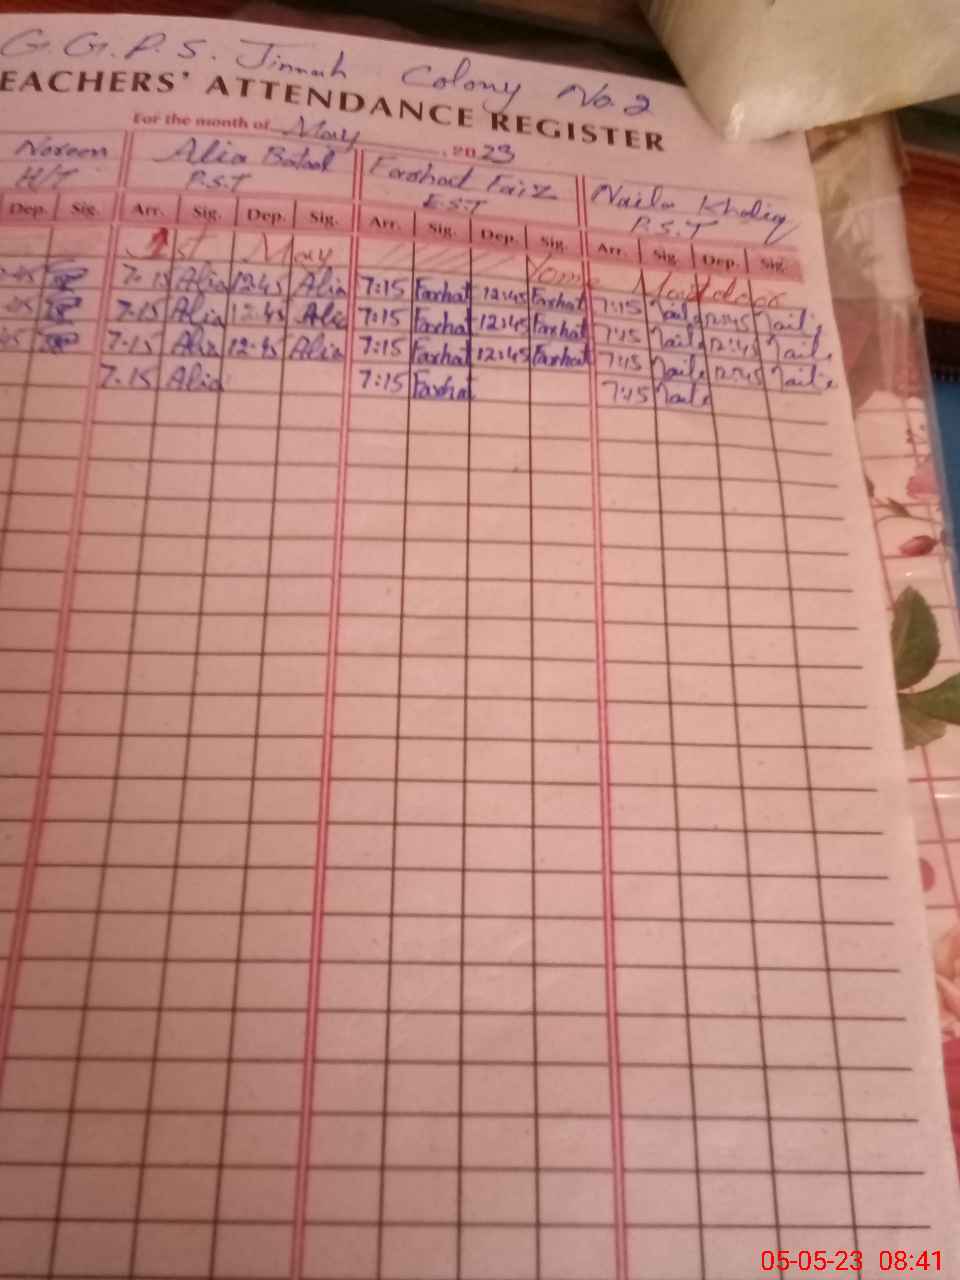 G.G.P.S. Jinnah Colony No.2
EACHERS' ATTENDANCE REGISTER
For the month of May, 2023
Noreen Alia Batool Farhat Faiz Naila Khaliq
H/T P.S.T E.S.T P.S.T
Dep. Sig. Arr. Sig. Dep. Sig. Arr. Sig. Dep. Sig. Arr. Sig. Dep. Sig.
1st May Yom e Mazdoor
7:15 Alia 12:45 Alia 7:15 Farhat 12:45 Farhat 7:15 Naila 12:45 Naila
7:15 Alia 12:45 Alia 7:15 Farhat 12:45 Farhat 7:15 Naila 12:45 Naila
7:15 Alia 12:45 Alia 7:15 Farhat 12:45 Farhat 7:15 Naila 12:45 Naila
7:15 Alia 7:15 Farhat 7:15 Naila
05-05-23 08:41